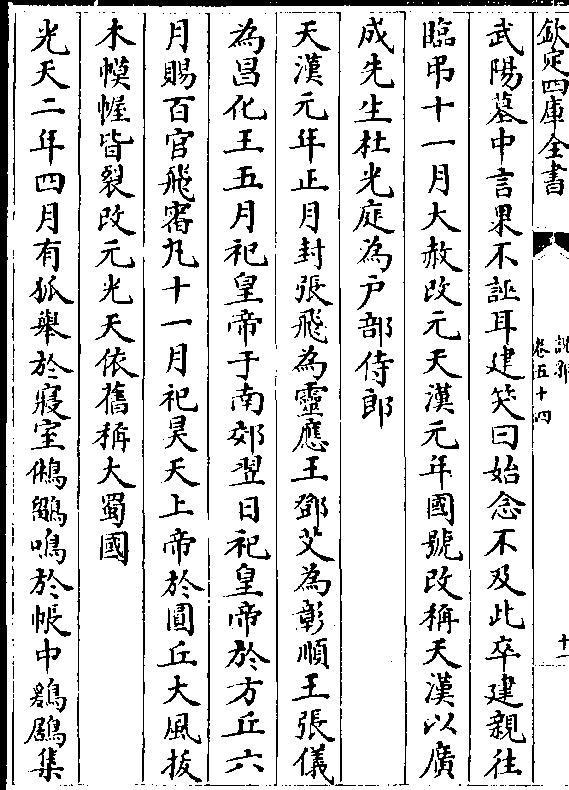 欽定四庫全書
說郛
卷五十四
十一
武陽墓中言果不誣耳建笑曰始念不及此卒建親往
臨弔十一月大赦改元天漢元年國號改稱天漢以廣
成先生杜光庭為户部侍郎
天漢元年正月封張飛為靈應王鄧艾為彰順王張儀
為昌化王五月祀皇帝于南郊翌日祀皇帝於方丘六
月賜百官飛
十一月祀昊天上帝於圓丘大風拔
木幙幄皆裂改元光天依舊稱大蜀國
光天二年四月有狐舉於寢室鵂鶹鳴於帳中鷄鶋集